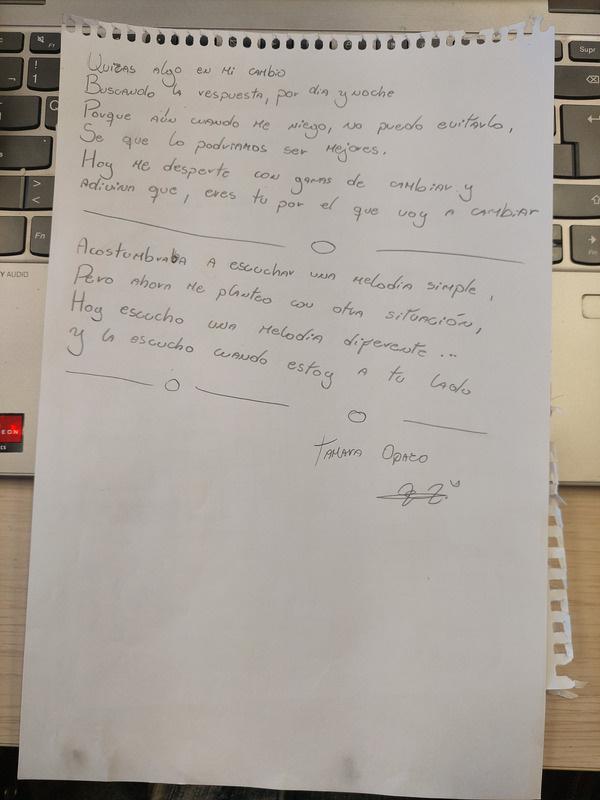 Quizas algo en mi cambio
Buscando la respuesta, por dia y noche
Porque aún cuando me niego, no puedo evitarlo,
Se que lo podriamos ser mejores.
Hoy me desperte con ganas de cambiar y
adivina que, eres tu por el que voy a cambiar
Acostumbraba a escuchar una melodia simple,
Pero ahora me planteo con otra situación,
Hoy escucho una melodia diferente...
y la escucho cuando estoy a tu lado
Tamara Opazo
Supr
Fn
! 1
> <
Y AUDIO